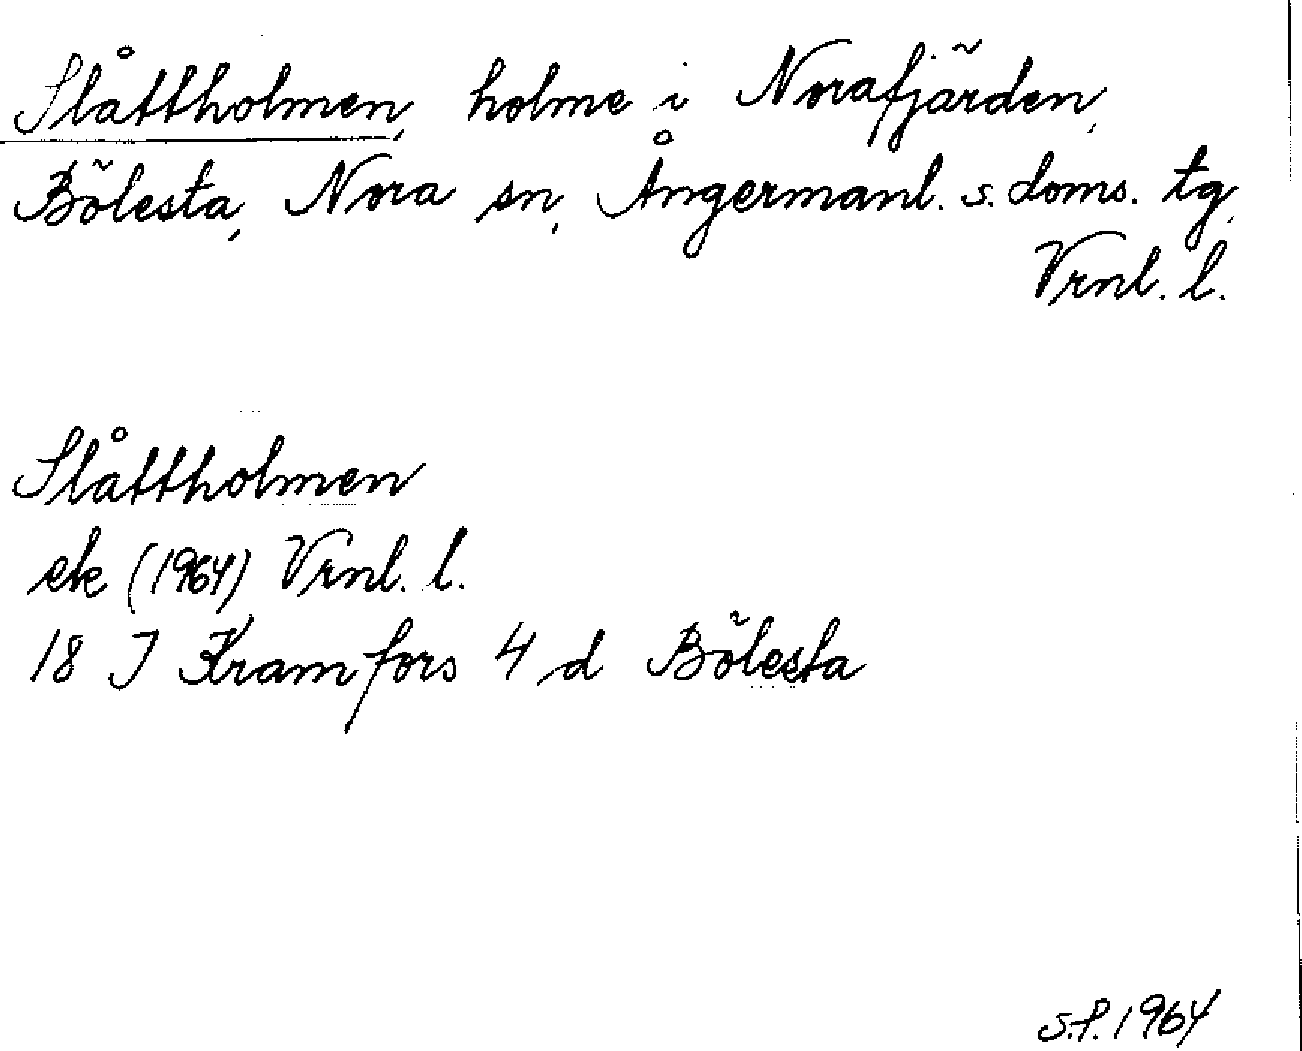 Slåttholmen, holme i Norafjärden,
Bölesta, Nora sn, Ångermanl. s. doms. tg,
Vrnl. l.
Slåttholmen
ek (1964) Vrnl. l.
18 J Kramfors 4 d Bölesta
S.P. 1964